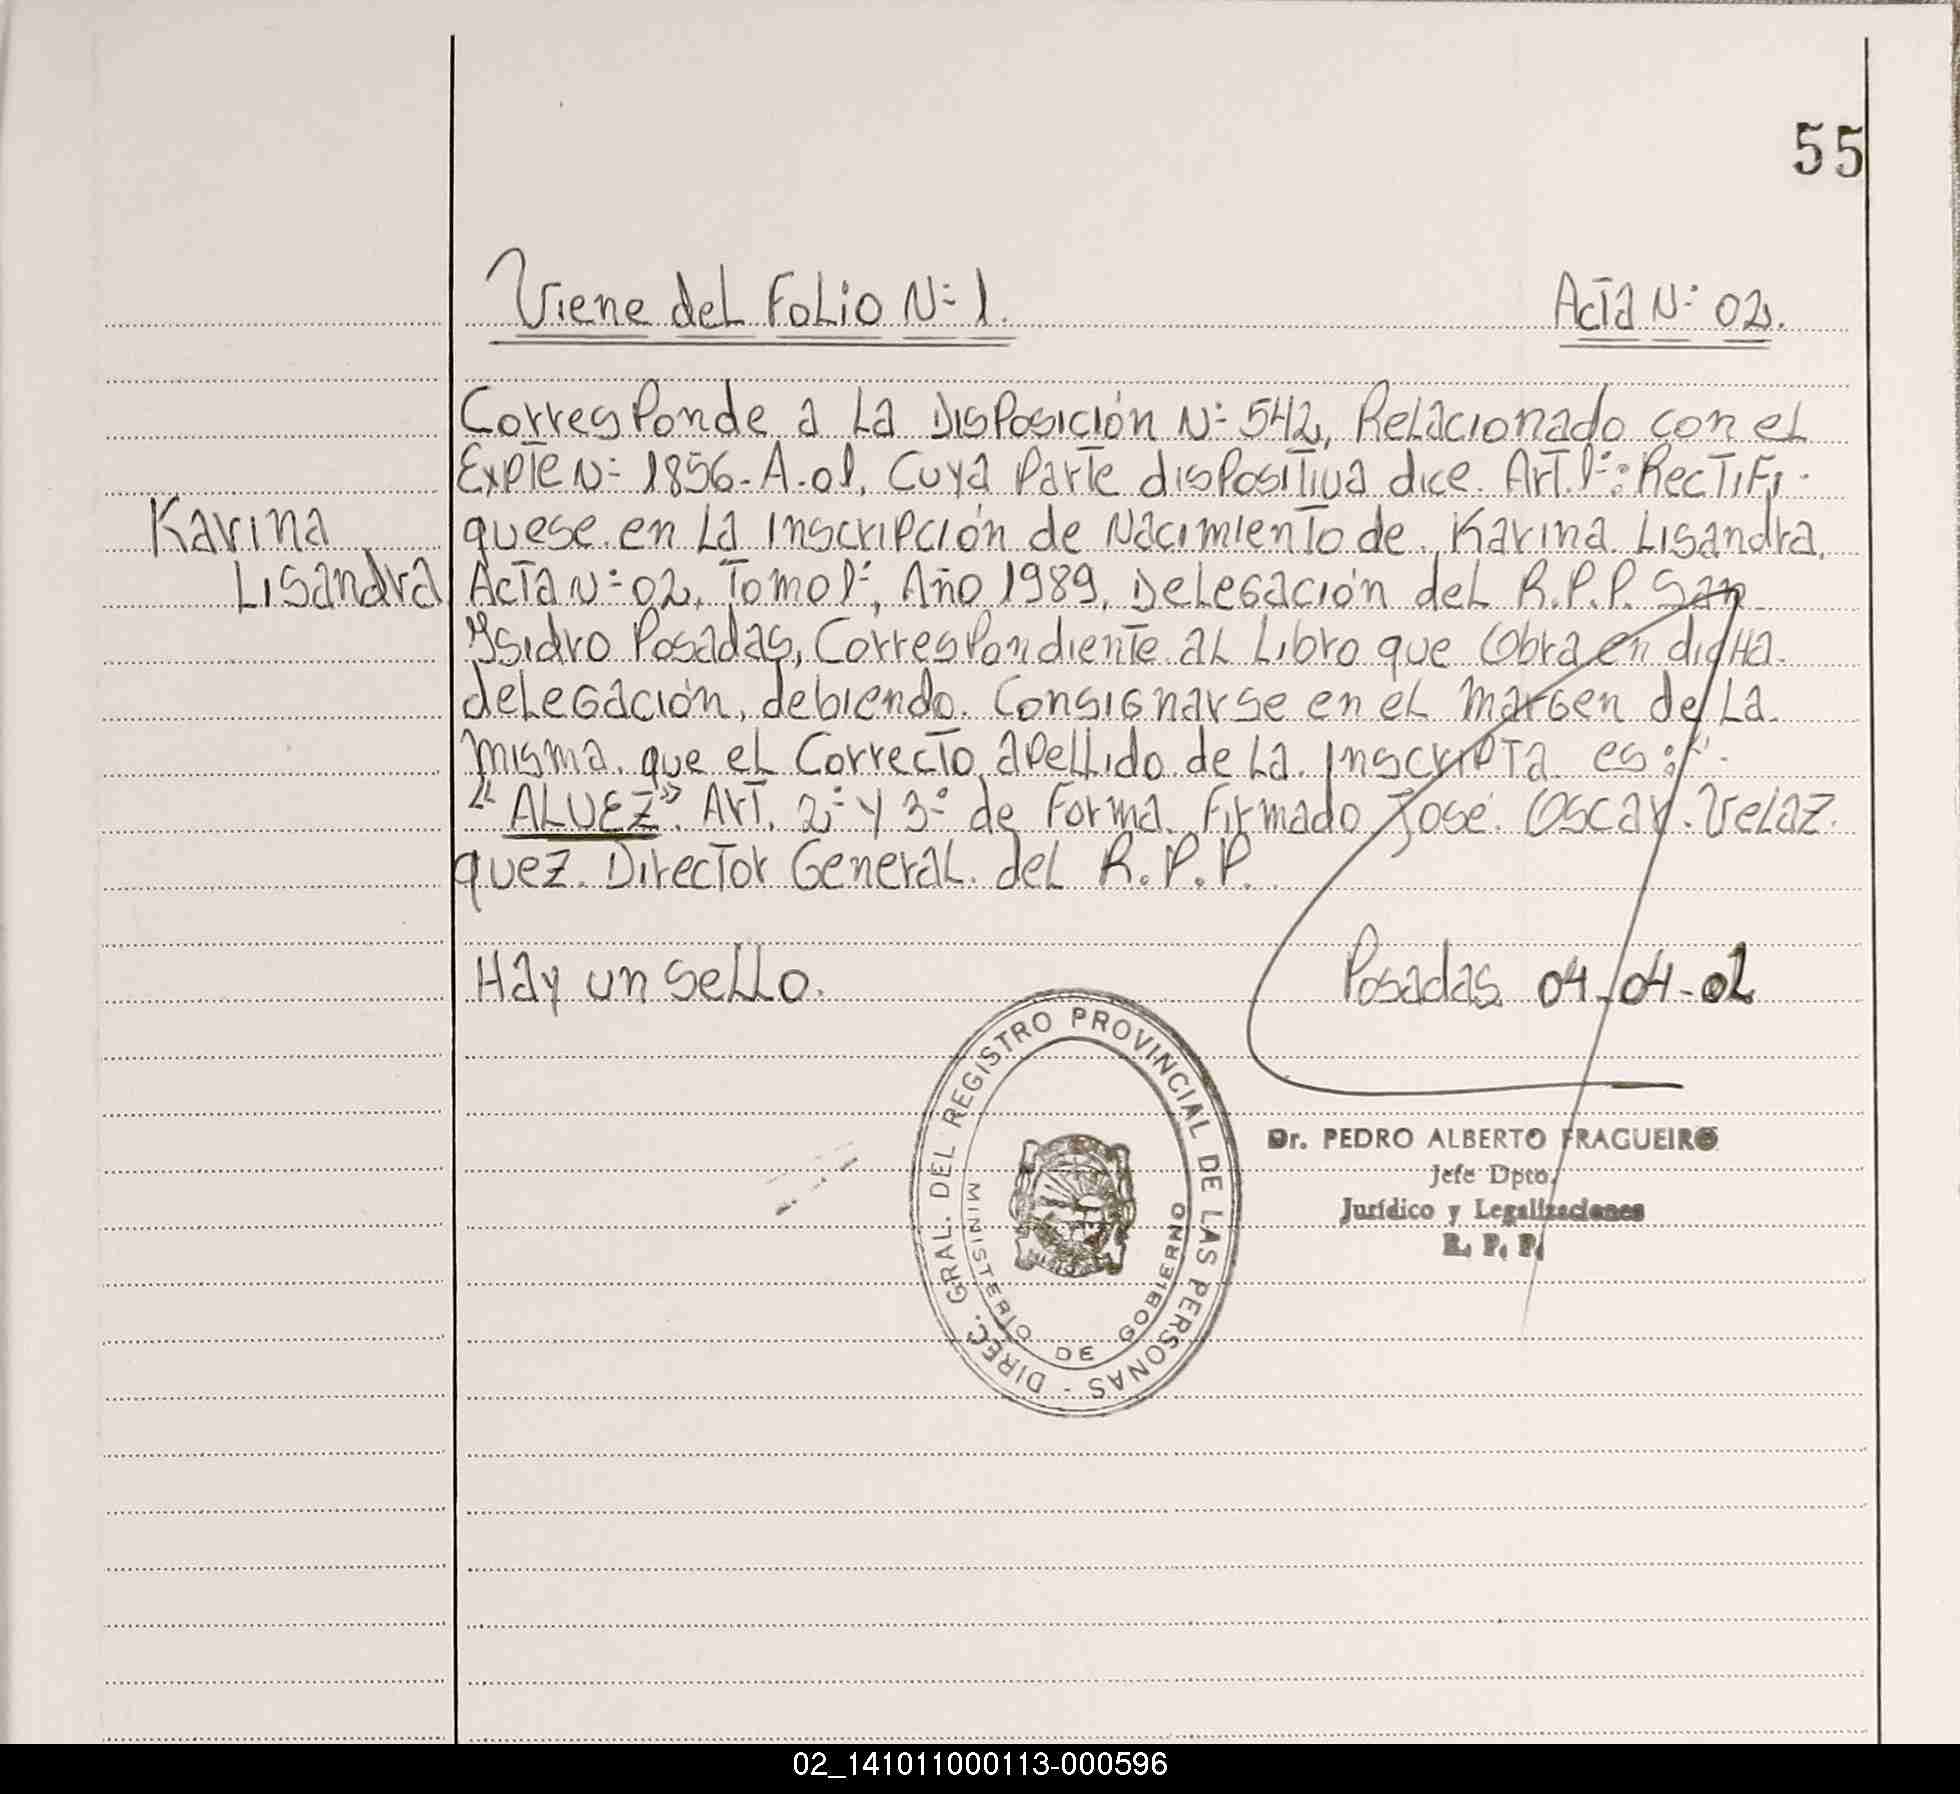 55
Viene del Folio N° 1. Acta N° 02.
Corresponde a La Disposición N° 542, Relacionado con el
Expte N° 1856-A-01, Cuya Parte dispositiva dice. Art. 1°: Rectifi-
Karina
quese en La Inscripción de Nacimiento de Karina Lisandra,
Lisandra
Acta N° 02, Tomo 1°, Año 1989, Delegación del R.P.P. San
Ysidro Posadas, Correspondiente al Libro que Obra en dicha
delegación, debiendo Consignarse en el margen de La
misma que el Correcto apellido de La Inscripta es:
"ALVEZ". Art. 2° y 3° de forma. Firmado José Oscar Velaz-
quez. Director General del R.P.P.
Hay un Sello. Posadas, 04-04-02
DIREC. GRAL. DEL REGISTRO PROVINCIAL DE LAS PERSONAS -
MINISTERIO DE GOBIERNO
Dr. PEDRO ALBERTO FRAGUEIRO
Jefe Dpto.
Jurídico y Legalizaciones
R. P. P.
02_141011000113-000596